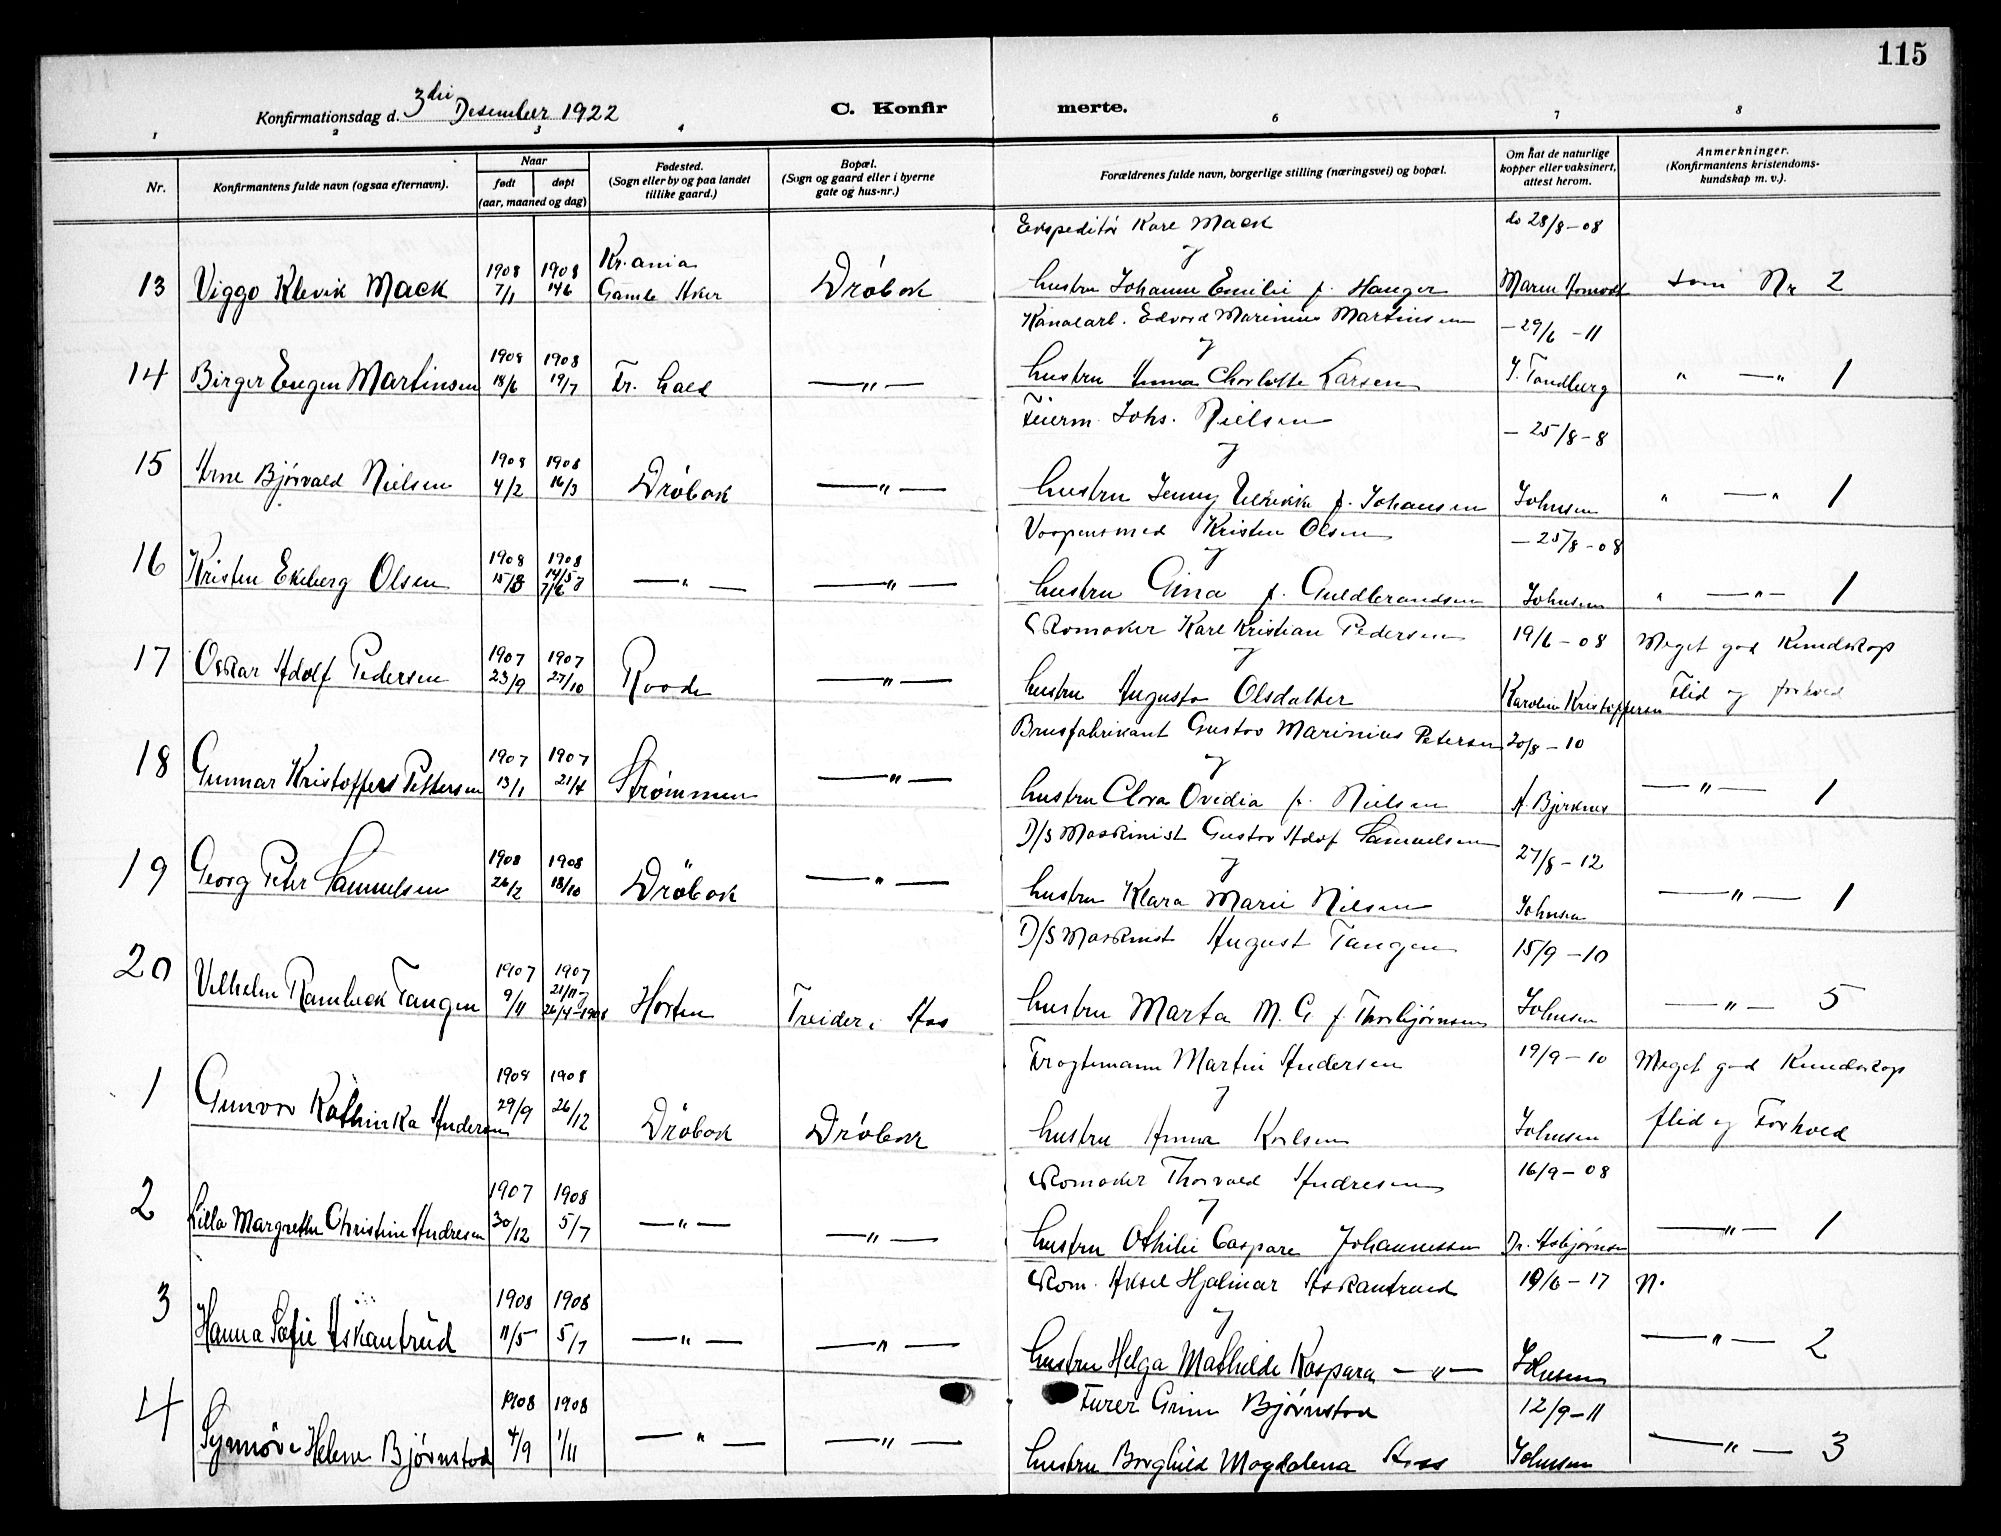 115
Konfirmationsdag d. 3die Desember 1922
C. Konfirmerte.
1 2 3 4 6 7 8
Nr.
Konfirmantens fulde navn (ogsaa efternavn).
Naar
født døpt
(aar, maaned og dag)
Fødested.
(Sogn eller by og paa landet
tillike gaard.)
Bopæl.
(Sogn og gaard eller i byerne
gate og hus-nr.)
Forældrenes fulde navn, borgerlige stilling (næringsvei) og bopæl.
Om hat de naturlige
kopper eller vaksinert,
attest herom.
Anmerkninger.
(Konfirmantens kristendoms-
kundskap m. v.).
Karl Mack do 28/8-08
og
13 Viggo Klevik Mack 1908 7/1 1908 14/6 Kr.ania Gamle Aker Drøbak hustru Johanne Emilie f. Hanger Maren som Nr 2
Edvard Marinius Martinsen - 29/6 - 11
og
14 Birger Eugen Martinsen 1908 18/6 1908 19/7 Fr. hald —"— hustru Anna Charlotte Larsen J. Tandberg " —" 1
Feierm. Johs. Nielsen - 25/8-8
og
15 Arne Bjørvald Nielsen 1908 4/2 1908 16/3 Drøbak —"— hustru Jenny f. Johansen Johnsen " —" 1
Kristen Olsen - 25/8-08
og
16 Kristen Ekeberg Olsen 1908 15/3 1908 14/5 7/6 —"— —"— hustru Gina f. Guldbrandsen Johnsen " —"— 1
Karl Kristian Pedersen 19/6-08 Meget god Kundskap
og
17 Oskar Adolf Pedersen 1907 23/9 1907 27/10 Raade —"— hustru Augusta Olsdatter Karoline Kristoffersen Flid og forhold
Brusfabrikant Gustav Marinius Petersen 20/8-10
og
18 Gunnar Kristoffers Pettersen 1907 13/1 1907 21/4 Strømmen —"— hustru Clara Ovidia f. Nielsen A. Bjerknes —"— 1
D/S Maskinist Gustav Adof Samuelsen 27/8-12
og
19 Georg Peter Samuelsen 1908 26/2 1908 18/10 Drøbak —"— hustru Klara Marie Nilsen Johnsen —"— 1
D/S Maskinist August Tangen 15/9-10
20 Vilhelm Rambeck Tangen 1907 9/11 1907 21/11 26/4-1908 Horten Treider, Aas hustru Marta M. G f. Thorbjørnsen Johnsen —"— 5
Fragtemann Martin Andersen 19/9-10 Meget god Kundskap
og
1 Gunvor Kathinka Andersen 1908 29/9 1908 26/12 Drøbak Drøbak hustru Anna Karlsen Johnsen flid og Forhold
Thorvald Andresen 16/9-08
og
2 Lilla Margrethe Christine Andresen 1907 30/12 1908 5/7 —"— —"— hustru Othilie Caspare Johannessen Dr. Asbjørnsen —"— 1
Aksel Hjalmar Askautrud 19/6-17 N.
og
3 Hanna Sofie Askautrud 1908 11/5 1908 5/7 —"— —"— hustru Helga Mathilde Kaspara —"— Johnsen —"— 2
Bjørnstad 12/9-11
4 Synnöve Helene Bjørnstad 1908 4/9 1908 1/11 —"— —"— hustru Borghild Magdalena Aass Johnsen —"— 3